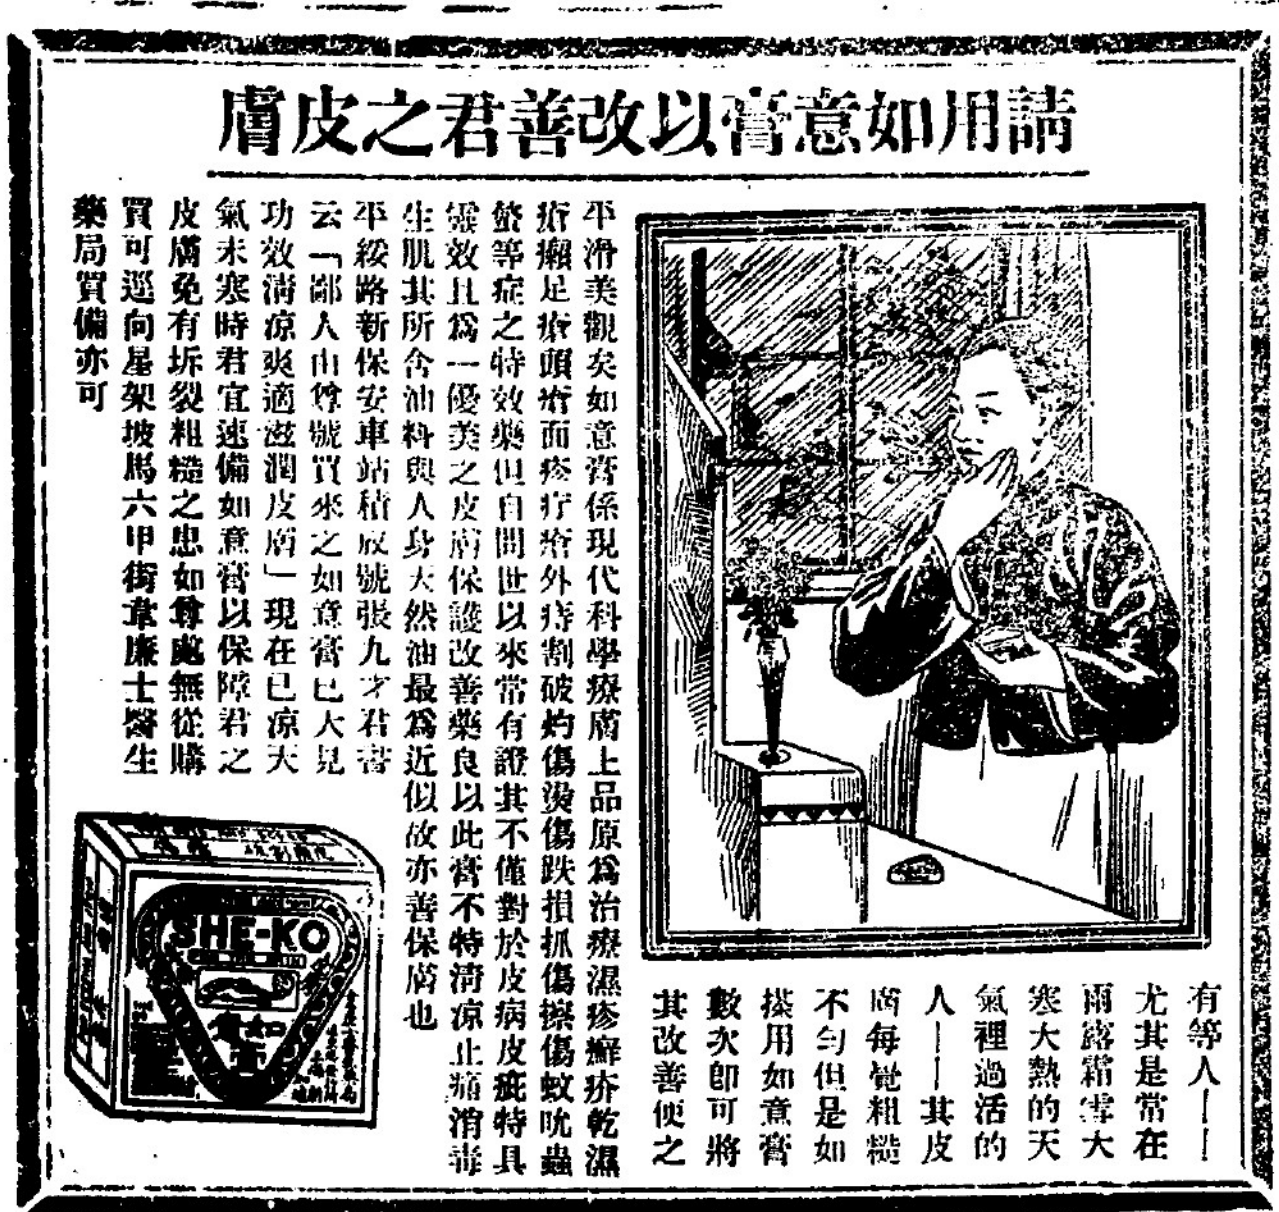 請用如意膏以改善君之皮膚
有等人——
尤其是常在
雨露霜雪大
寒大熱的天
氣裡過活的
人——其皮
膚每覺粗糙
不勻但是如
搽用如意膏
數次即可將
其改善使之
平滑美觀矣如意膏係現代科學療膚上品原爲治療濕疹癬疥乾濕
疥癩足瘡頭瘡面疹疔瘡外痔割破灼傷燙傷跌損抓傷擦傷蚊吮蟲
螫等症之特效藥但自問世以來常有證其不僅對於皮病皮疵特具
靈效且爲一優美之皮膚保護改善藥良以此膏不特清凉止痛消毒
生肌其所含油料與人身天然油最爲近似故亦善保膚也
平綏路新保安車站積成號張九才君書
云「鄙人由尊號買來之如意膏已大見
功效清凉爽適滋潤皮膚」現在已凉天
氣未寒時君宜速備如意膏以保障君之
皮膚免有坼裂粗糙之患如尊處無從購
買可逕向星架坡馬六甲街韋廉士醫生
藥局買備亦可
SHE-KO
如意膏